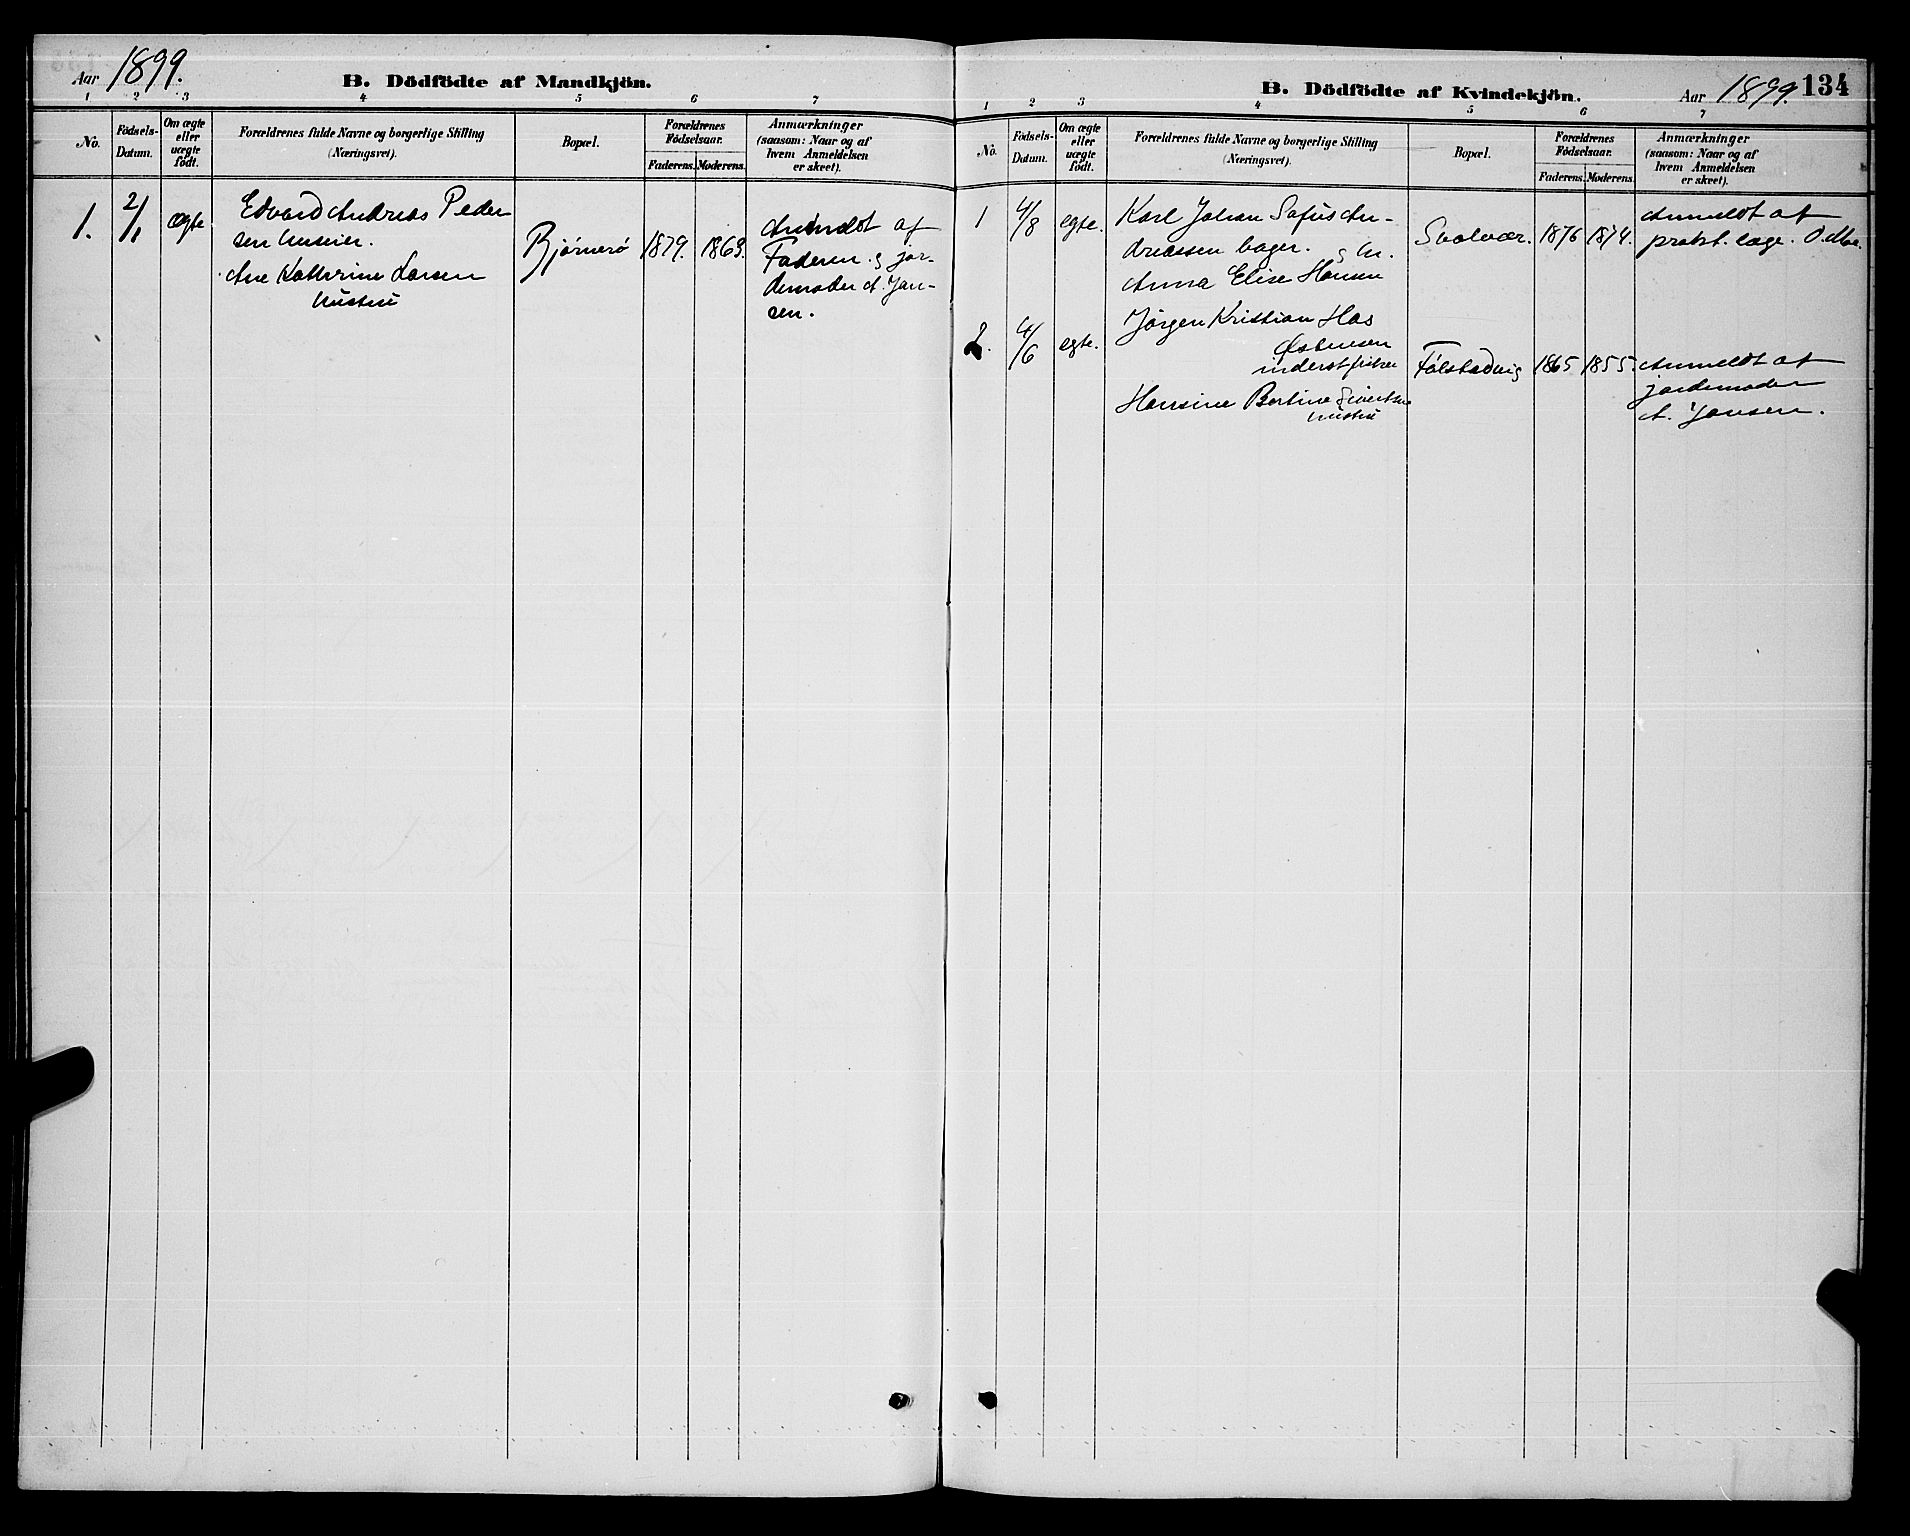 Aar 1899.
B. Dödfödte af Mandkjön.
1 2 3 4 5 6 7
No.
Födsels-
Datum.
Om ægte
eller
uægte
födt.
Forældrenes fulde Navne og borgerlige Stilling
(Næringsvei).
Bopæl.
Forældrenes
Födselsaar.
Faderens. Moderens.
Anmærkninger
(saasom: Naar og af
hvem Anmeldelsen
er skeet).
1.
2/1
ægte
Edvard Andreas Peder
sen
Ane Kathrine Larsen
hustru
Bjørnerø
1879.
1863.
Anmeldt af
Faderen. og jor-
demoder A. Jan-
sen.
B. Dödfödte af Kvindekjön.
Aar 1899.
134
1 2 3 4 5 6 7
No.
Födsels-
Datum.
Om ægte
eller
uægte
födt.
Forældrenes fulde Navne og borgerlige Stilling
(Næringsvei).
Bopæl.
Forældrenes
Födselsaar.
Faderens. Moderens.
Anmærkninger
(saasom: Naar og af
hvem Anmeldelsen
er skeet).
1
4/8
egte.
Karl Johan Sofus An-
dreassen bager. og h.
Anna Elise Hansen
Svolvær.
1876
1874.
Anmeldt af
prakt. læge.
2.
4/6
egte.
Jörgen Kristian Has
Østensen
inderst fisker
Hansine Bertine Sivertsen
hustru
Følstadvig
1865
1855.
Anmeldt af
jordemoder
A. Jansen.